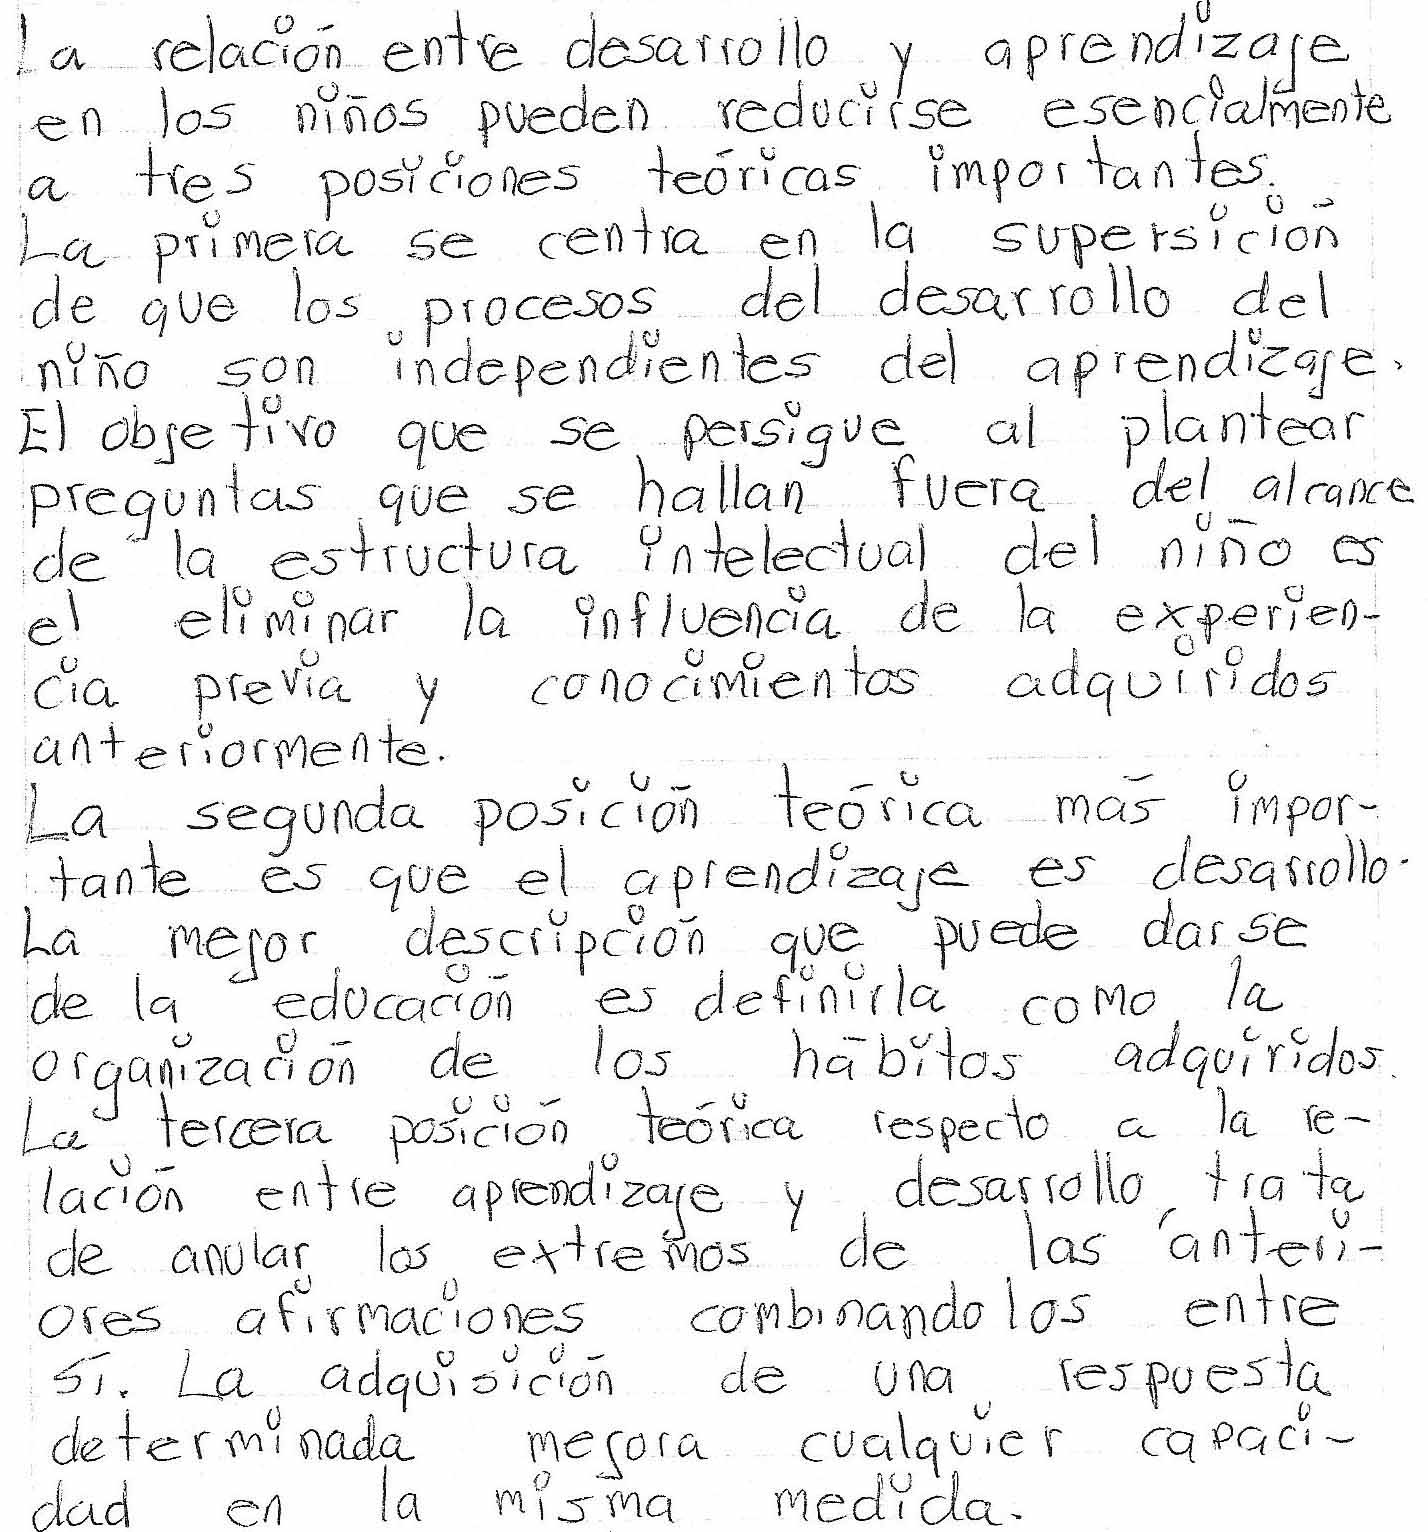 La relación entre desarrollo y aprendizaje
en los niños pueden reducirse esencialmente
a tres posiciones teóricas importantes.
La primera se centra en la supersición
de que los procesos del desarrollo del
niño son independientes del aprendizaje.
El objetivo que se persigue al plantear
preguntas que se hallan fuera del alcance
de la estructura intelectual del niño es
el eliminar la influencia de la experien-
cia previa y conocimientos adquiridos
anteriormente.
La segunda posición teórica más impor-
tante es que el aprendizaje es desarrollo.
La mejor descripción que puede darse
de la educación es definirla como la
organización de los hábitos adquiridos.
La tercera posición teórica respecto a la re-
lación entre aprendizaje y desarrollo, trata
de anular los extremos de las anteri-
ores afirmaciones combinandolos entre
sí. La adquisición de una respuesta
determinada mejora cualquier capaci-
dad en la misma medida.